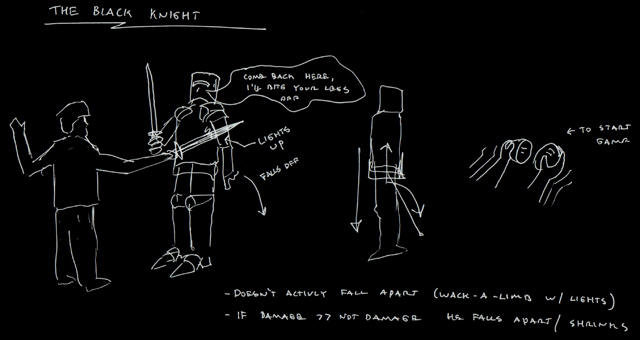 THE BLACK KNIGHT
COME BACK HERE,
I'LL BITE YOUR LEGS
OFF
LIGHTS
UP
FALLS OFF
← TO START
GAME
- DOESN'T ACTIVLY FALL APART (WACK-A-LIMB W/ LIGHTS)
- IF DAMAGE >> NOT DAMAGE HE FALLS APART/SHRINKS